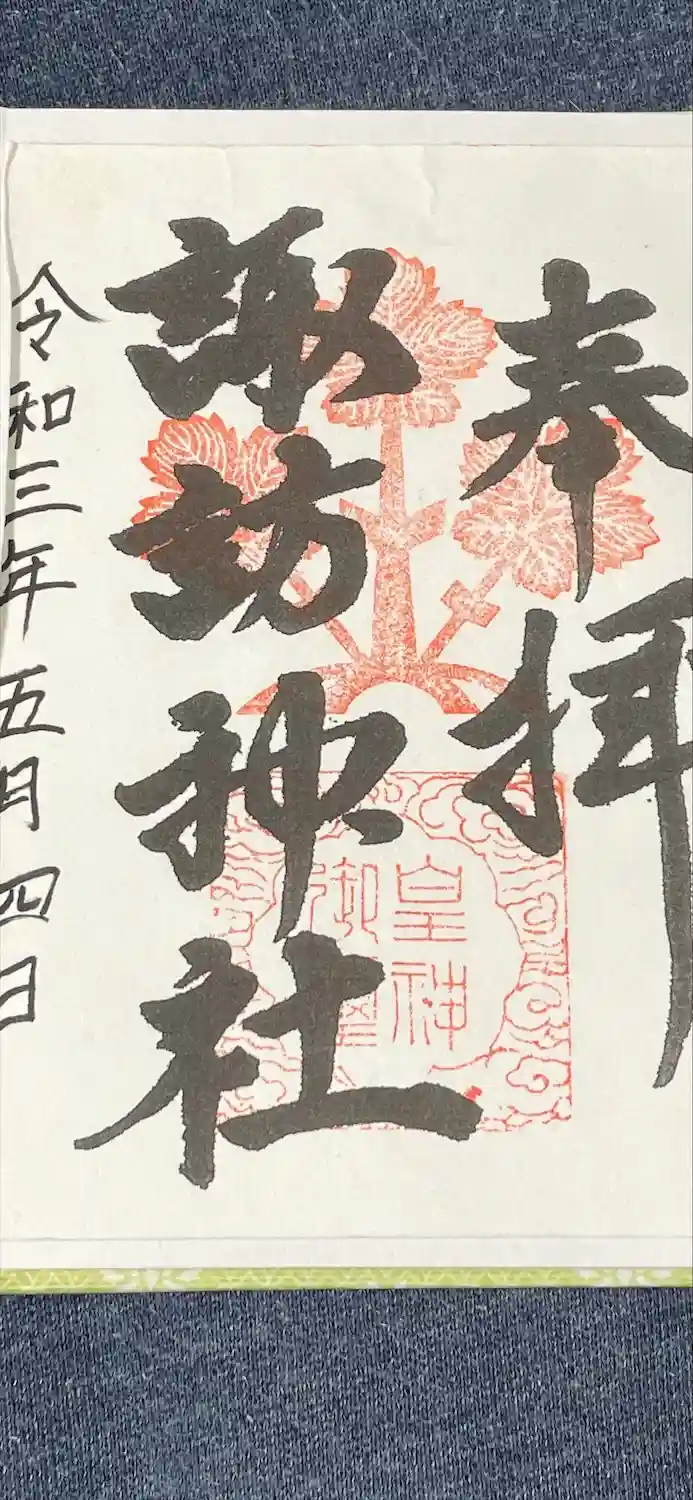 奉拝
諏訪神社
皇神
御璽
令和三年五月四日